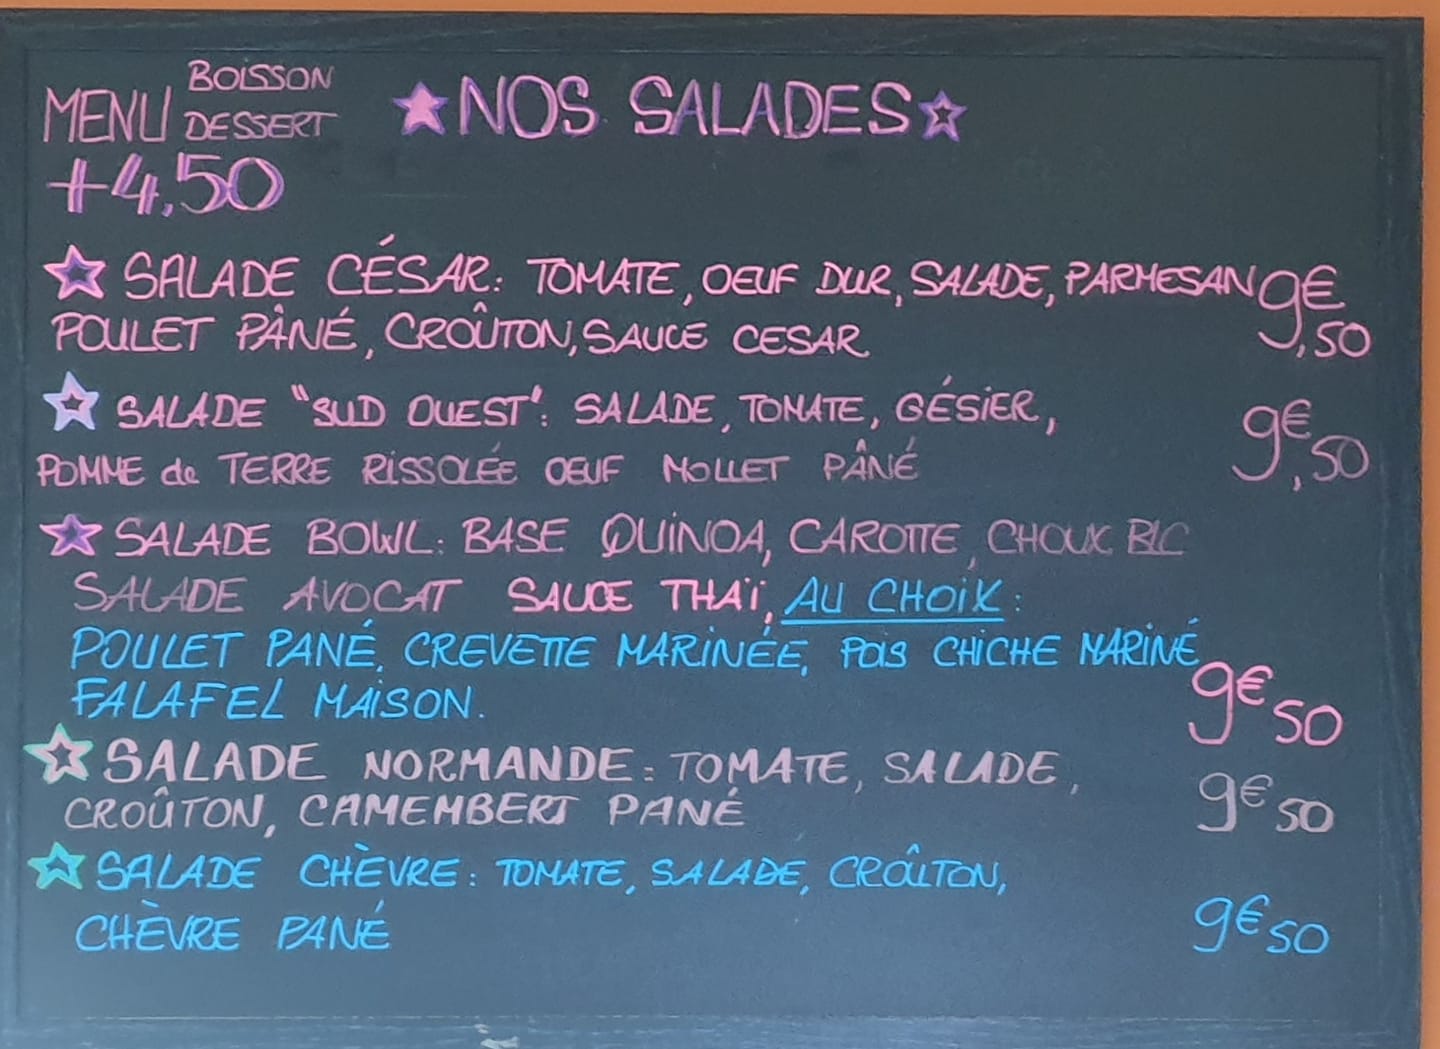 MENU BOISSON DESSERT
+4,50
NOS SALADES
SALADE CÉSAR: TOMATE, OEUF DUR, SALADE, PARMESAN 9€,50
POULET PÂNÉ, CROÛTON, SAUCE CESAR
SALADE "SUD OUEST": SALADE, TOMATE, GÉSIER, 9€,50
POMME de TERRE RISSOLÉE OEUF MOLLET PÂNÉ
SALADE BOWL: BASE QUINOA, CAROTTE, CHOUX BLC
SALADE AVOCAT SAUCE THAÏ, AU CHOIX:
POULET PANÉ, CREVETTE MARINÉE, POIS CHICHE MARINÉ
FALAFEL MAISON. 9€50
SALADE NORMANDE: TOMATE, SALADE,
CROÛTON, CAMEMBERT PANÉ 9€50
SALADE CHÈVRE: TOMATE, SALADE, CROÛTON,
CHÈVRE PANÉ 9€50